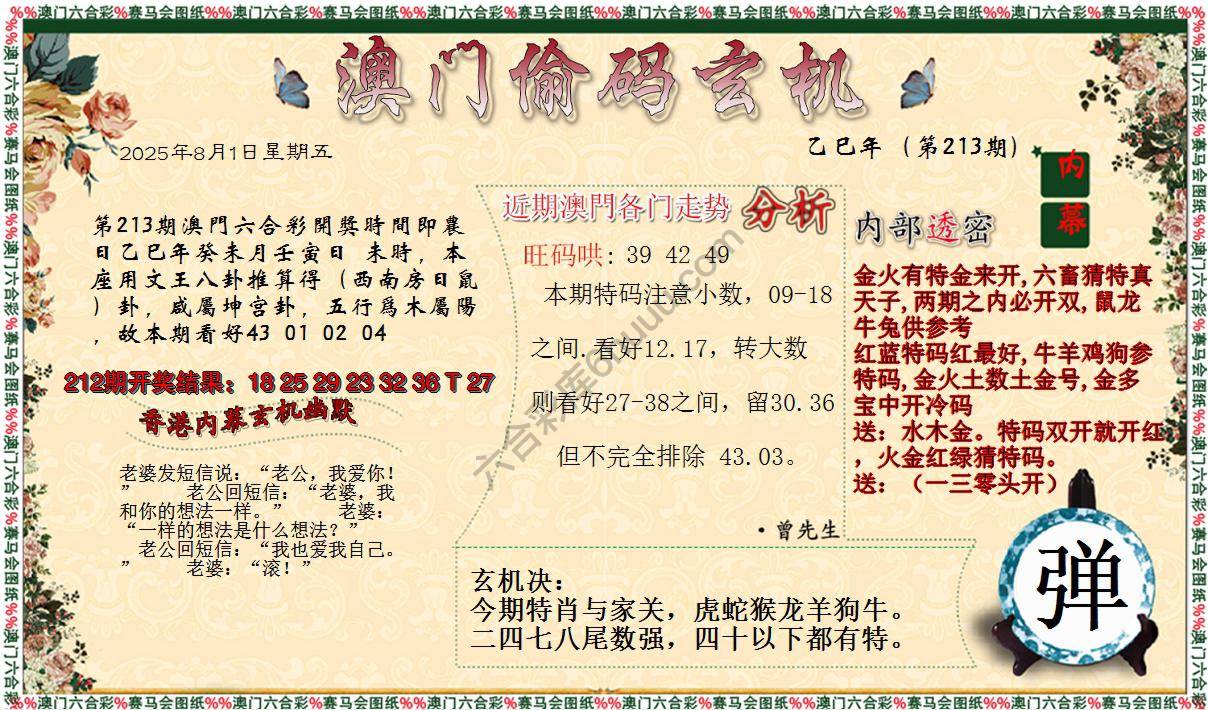 %%澳门六合彩%赛马会图纸%%澳门六合彩%赛马会图纸%%澳门六合彩%赛马会图纸%%澳门六合彩%赛马会图纸%%澳门六合彩%赛马会图纸%%澳门六合彩%赛马会图纸%%
澳门偷码玄机
2025年8月1日星期五
乙巳年（第213期）
内幕
第213期澳門六合彩開獎時間即農
日乙巳年癸未月壬寅日 未時，本
座用文王八卦推算得（西南房日鼠
）卦，咸屬坤宫卦，五行爲木屬陽
，故本期看好43 01 02 04
212期开奖结果：18 25 29 23 32 36 T 27
香港内幕玄机幽默
老婆发短信说：“老公，我爱你！
” 老公回短信：“老婆，我
和你的想法一样。” 老婆：
“一样的想法是什么想法？”
老公回短信：“我也爱我自己。
” 老婆：“滚！”
近期澳門各门走势 分析
旺码哄: 39 42 49
本期特码注意小数，09-18
之间.看好12.17，转大数
则看好27-38之间，留30.36
但不完全排除 43.03。
·曾先生
内部透密
金火有特金来开,六畜猜特真
天子,两期之内必开双,鼠龙
牛兔供参考
红蓝特码红最好,牛羊鸡狗参
特码,金火土数土金号,金多
宝中开冷码
送：水木金。特码双开就开红
，火金红绿猜特码。
送：（一三零头开）
玄机决：
今期特肖与家关，虎蛇猴龙羊狗牛。
二四七八尾数强，四十以下都有特。
弹
六合彩库6huuu.com
%%澳门六合彩%赛马会图纸%%澳门六合彩%赛马会图纸%%澳门六合彩%赛马会图纸%%澳门六合彩%赛马会图纸%%澳门六合彩%赛马会图纸%%澳门六合彩%赛马会图纸%%